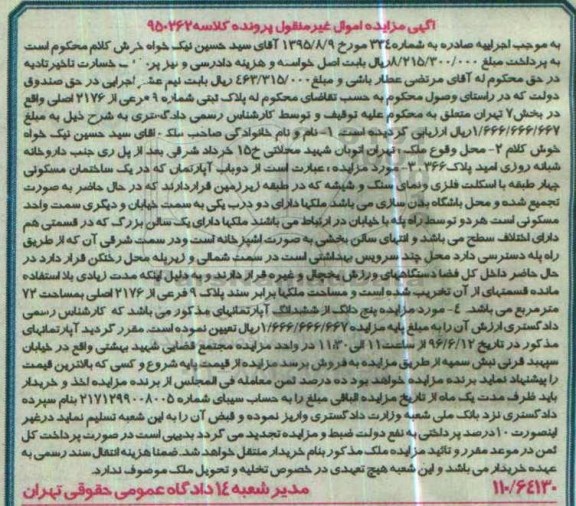 آگهی مزایده اموال غیرمنقول پرونده کلاسه ۹۵۰۲۶۲
به موجب اجراییه صادره به شماره ۳۳۴ مورخ ۱۳۹۵/۸/۹ آقای سید حسین نیک خواه خوش کلام محکوم است
به پرداخت مبلغ ۸/۲۱۵/۳۰۰/۰۰۰ ریال بابت اصل خواسته و هزینه دادرسی و نیز پرداخت خسارت تاخیر تادیه
در حق محکوم له آقای مرتضی عطار باشی و مبلغ ۴۶۳/۳۱۵/۰۰۰ ریال بابت نیم عشر اجرایی در حق صندوق
دولت که در راستای وصول محکوم به حسب تقاضای محکوم له پلاک ثبتی شماره ۹ فرعی از ۲۱۷۶ اصلی واقع
در بخش ۷ تهران متعلق به محکوم علیه توقیف و توسط کارشناس رسمی دادگستری به شرح ذیل به مبلغ
۱/۶۶۶/۶۶۶/۶۶۷ ریال ارزیابی گردیده است. ۱- نام و نام خانوادگی صاحب ملک: اقای سید حسین نیک خواه
خوش کلام ۲- محل وقوع ملک: تهران اتوبان شهید محلاتی خ ۱۵ خرداد شرقی بعد از پل ری جنب داروخانه
شبانه روزی امید پلاک ۳۶۶ ۳- مورد مزایده: عبارت است از دوباب آپارتمان که در یک ساختمان مسکونی
چهار طبقه با اسکلت فلزی و نمای سنگ و شیشه که در طبقه زیرزمین قراردارند که در حال حاضر به صورت
تجمیع شده و محل باشگاه بدن سازی می باشد ملکها دارای دو درب یکی به سمت خیابان و دیگری سمت واحد
مسکونی است هر دو توسط راه پله با خیابان در ارتباط می باشند ملکها دارای یک سالن بزرگ که در قسمتی هم
دارای اختلاف سطح می باشد و انتهای سالن بخشی به صورت اشپزخانه است ودر سمت شرقی آن که از طریق
راه پله دسترسی دارد محل چند سرویس بهداشتی است در سمت شمالی و زیرپله محل رختکن قرار دارد در
حال حاضر داخل کل فضا دستگاههای ورزش یخچال و غیره قرار دارند و به دلیل اینکه مدت زیادی بلا استفاده
مانده قسمتهای از آن تخریب شده است و مساحت ملکها برابر سند پلاک ۹ فرعی از ۲۱۷۶ اصلی بمساحت ۷۲
مترمربع می باشد. ۴- مورد مزایده پنج دانگ از ششدانگ آپارتمانهای مذکور می باشد که کارشناس رسمی
دادگستری ارزش آن را به مبلغ پایه مزایده ۱/۶۶۶/۶۶۶/۶۶۷ ریال تعیین نموده است. مقرر گردید آپارتمانهای
مذکور در تاریخ ۹۶/۶/۱۲ از ساعت ۱۱ الی ۱۱:۳۰ در واحد مزایده مجتمع قضایی شهید بهشتی واقع در خیابان
سپهبد قرنی نبش سمیه از طریق مزایده به فروش برسد مزایده از قیمت پایه شروع و کسی که بالاترین قیمت
را پیشنهاد نماید برنده مزایده خواهد بود ده درصد ثمن معامله فی المجلس از برنده مزایده اخذ و خریدار
باید ظرف مدت یک ماه از تاریخ مزایده الباقی مبلغ را به حساب سیبای شماره ۲۱۷۱۲۹۹۰۰۸۰۰۵ بنام سپرده
دادگستری نزد بانک ملی شعبه وزارت دادگستری واریز نموده و قبض آن را به این شعبه تسلیم نماید درغیر
اینصورت ۱۰ درصد پرداختی به نفع دولت ضبط و مزایده تجدید می گردد بدیهی است در صورت پرداخت کل
ثمن در موعد مقرر و تائید مزایده ملک مذکور بنام خریدار منتقل خواهد شد. ضمنا هزینه انتقال سند رسمی به
عهده خریدار می باشد و این شعبه هیچ تعهدی در خصوص تخلیه و تحویل ملک موصوف ندارد.
۱۱۰/۶۴۱۳۰ مدیر شعبه ۱۴ دادگاه عمومی حقوقی تهران